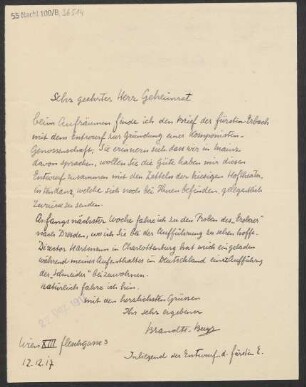 53 Nachl. 100/B, 36014
Sehr geehrter Herr Geheimrat
beim Aufräumen finde ich den Brief des Fürsten Erbach
mit dem Entwurf zur Gründung einer Komponisten-
Genossenschaft. Sie erinnern sich dass wir in Mainz
davon sprachen, wollen Sie die Güte haben mir diesen
Entwurf zusammen mit den Zetteln der hiesigen Hoftheater
welche sich noch bei Ihnen befinden, gelegentlich
zurück zu senden.
Anfangs nächster Woche fahre ich zu den Proben des "Eroberer"
nach Dresden, wo ich Sie bei der Aufführung zu sehen hoffe.
Direktor Hartmann in Charlottenburg hat mich eingeladen
während meines Aufenthaltes in Deutschland einer Aufführung
der "Schneider" beizuwohnen.
natürlich fahre ich hin.
mit den herzlichsten Grüssen
Ihr sehr ergebener
Brandts-Buys
Wien XIII
12.12.17
Inliegend der Entwurf d. Fürsten E.